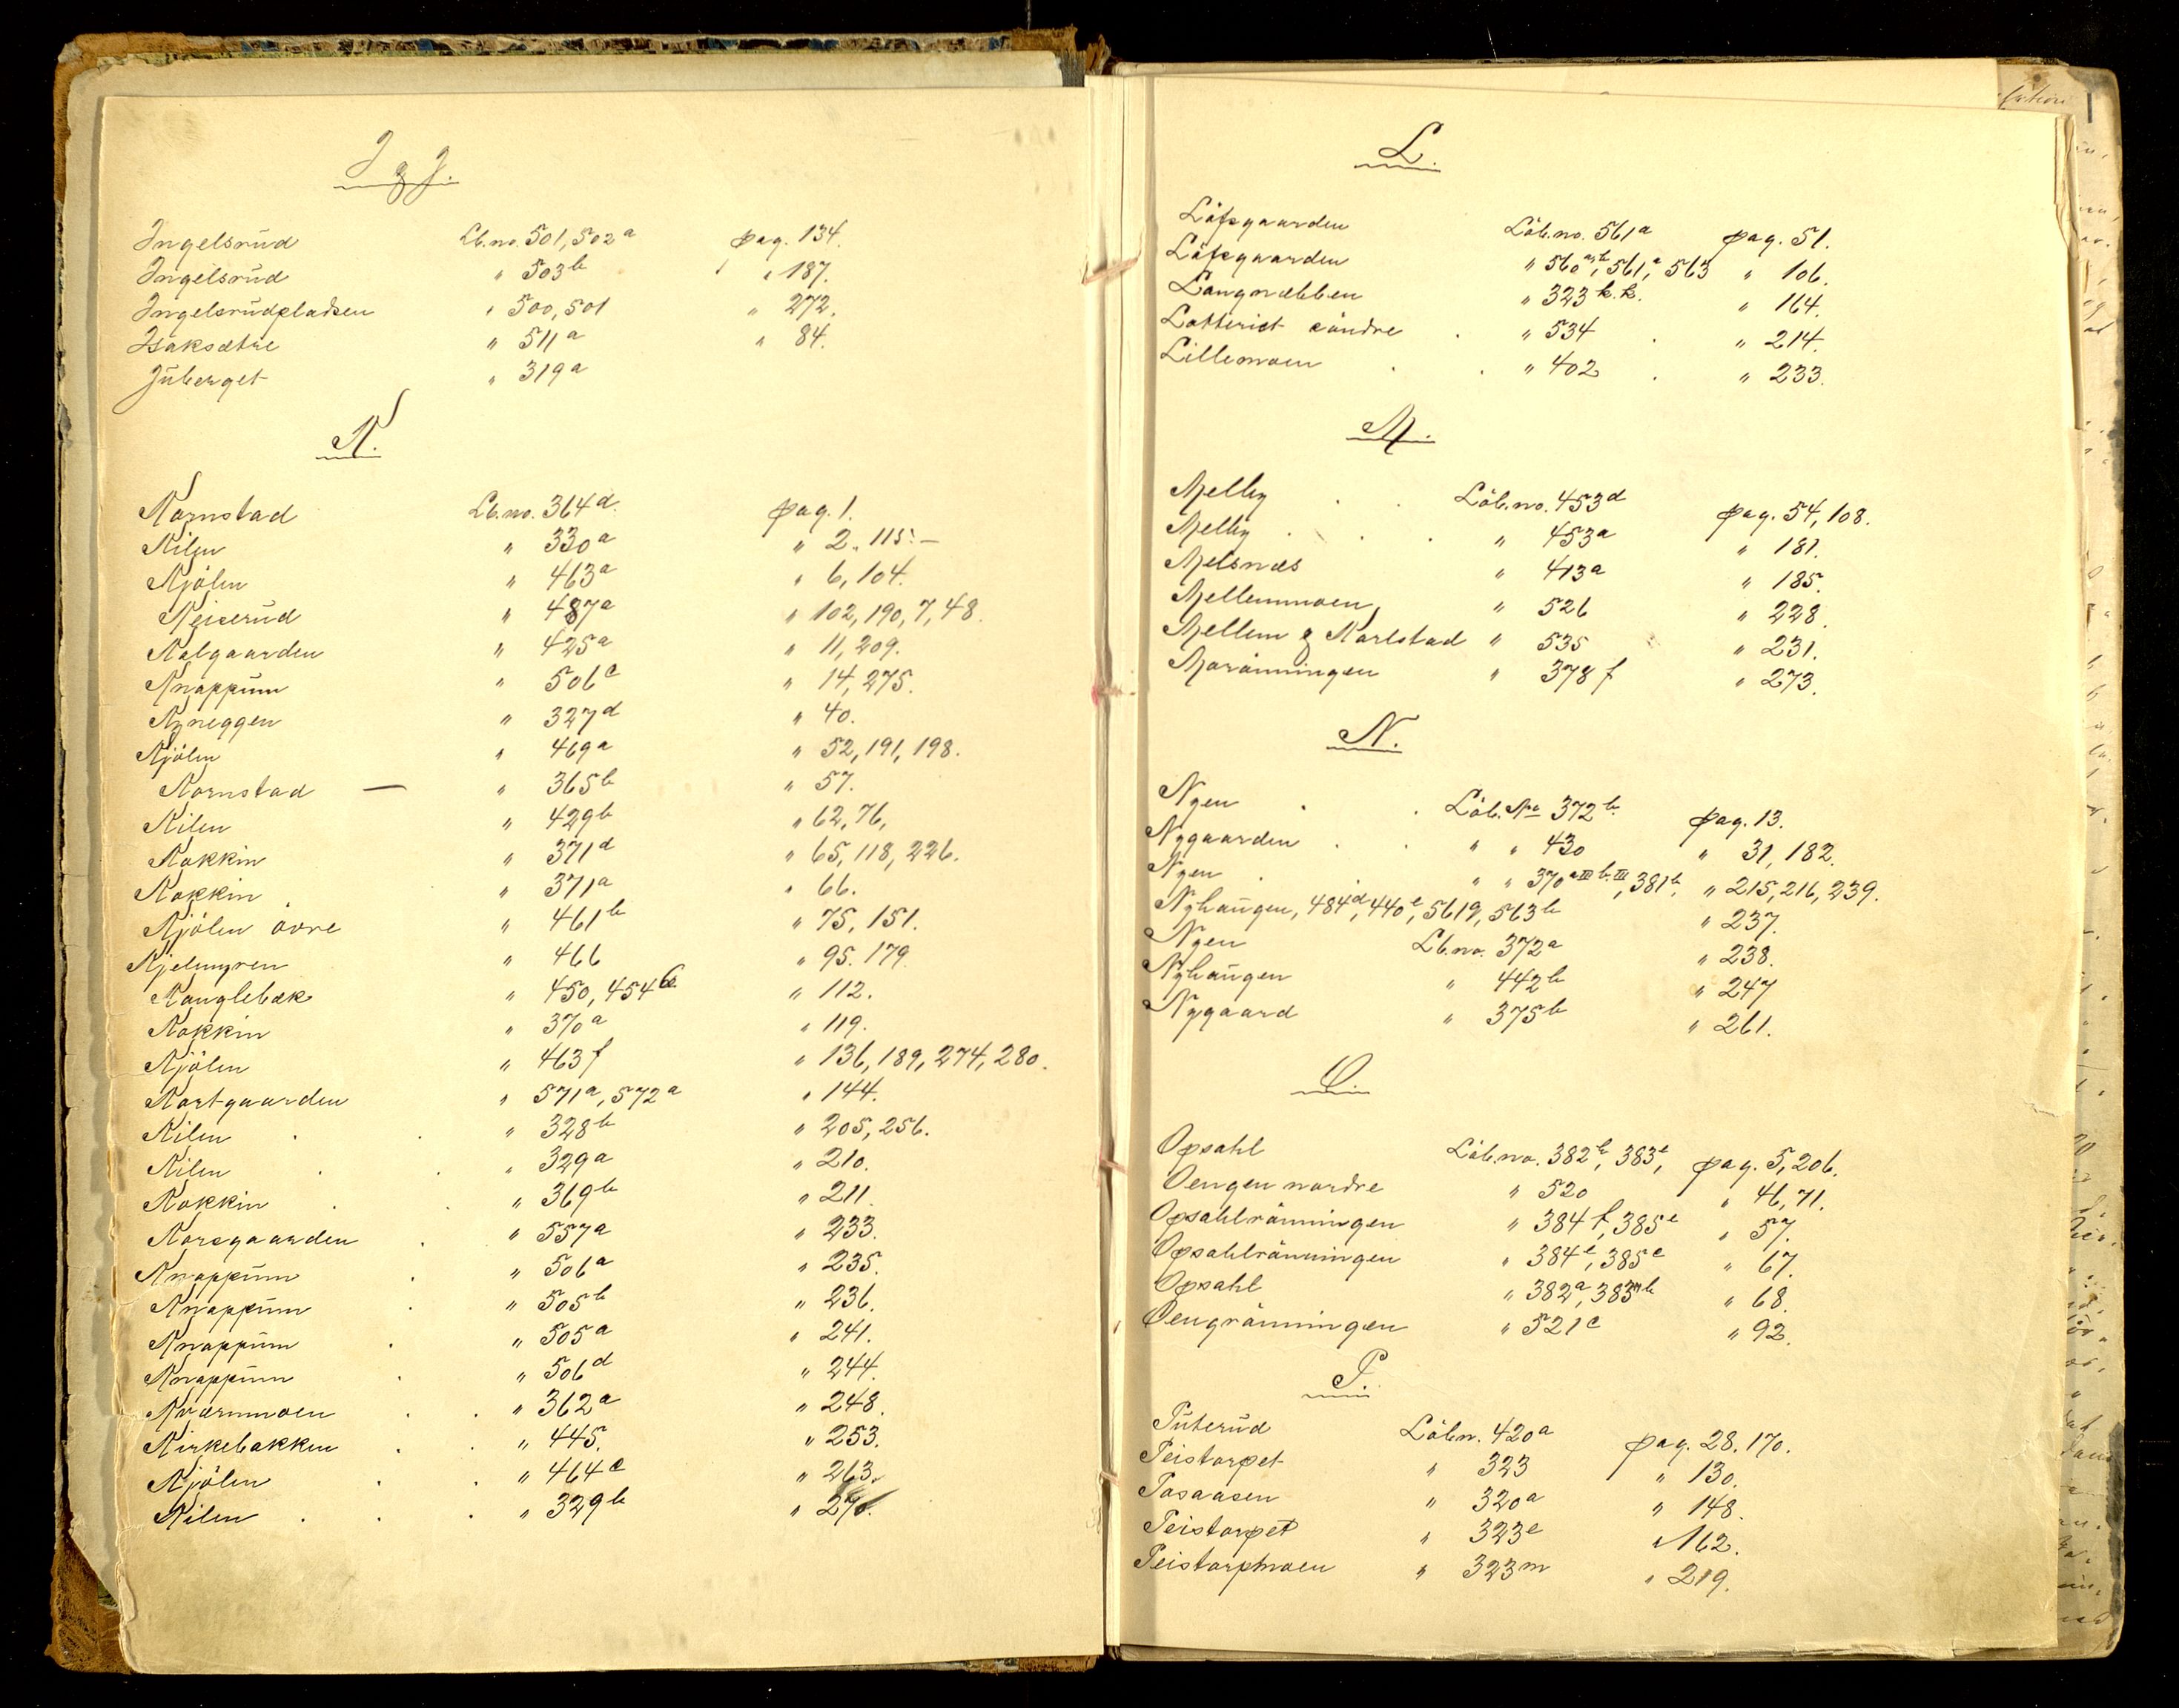 I & J.
Ingelsrud Lb.no. 501, 502a pag. 134.
Ingelsrud " 503b " 187.
Ingelsrudpladsen " 500, 501 " 272.
Isaksætre " 511a " 84.
Juberget " 319a
K.
Kornstad Lb.no. 364d pag. 1.
Kilen " 330a " 2. 115.—
Kjölen " 463a " 6, 104.
Keiserud " 487a " 102, 190, 7, 48.
Kalgaarden " 425a " 11, 209.
Knappum " 506c " 14, 275.
Kyneggen " 327d " 40.
Kjölen " 469a " 52, 191, 198.
Kornstad — " 365b " 57.
Kilen " 429b " 62, 76,
Kokkin " 371d " 65, 118, 226.
Kokkin " 371a " 66.
Kjölen övre " 461b " 75, 151.
Kjelmyren " 466 " 95. 179
Kauglebæk " 450, 454b " 112.
Kokkin " 370a " 119.
Kjölen " 463f " 136, 189, 274, 280.
Kortgaarden " 571a, 572a " 144.
Kilen " 328b " 205, 256.
Kilen " 329a " 210.
Kokkin " 369b " 211.
Korsgaarden " 557a " 233.
Knappum " 506a " 235.
Knappum " 505b " 236.
Knappum " 505a " 241.
Knappum " 506d " 244.
Kværnmoen " 362a " 248.
Kirkebakken " 445. " 253.
Kjölen " 464c " 263.
Kilen " 329b " 270.
L.
Löfsgaarden Löb.no. 561a pag. 51.
Löfsgaarden " 560a,b, 561a, 563 " 106.
Langnæbben " 323k.k. " 164.
Lotteriet söndre " 534 " 214.
Lillemoen " 402 " 233.
M.
Melby Löb.no. 453d pag. 54, 108.
Melby " 453a " 181.
Melsnæs " 413a " 185.
Mellemmoen " 526 " 228.
Mellem & Karlstad " 535 " 231.
Morönningen " 378f " 273.
N.
Nyen Löb.No 372b. pag. 13.
Nygaarden " " 430 " 31, 182.
Nyen " " 370a III b. III, 381b. " 215, 216, 239.
Nyhaugen, 484d, 440e, 561g, 563b " 237.
Nyen Lb.no. 372a " 238.
Nyhaugen " 442b " 247
Nygaard " 375b " 261.
O.
Opsahl Löb.no. 382b, 383e, pag. 5, 206.
Oengen nordre " 520 " 46, 71.
Opsahlrönningen " 384f, 385e " 57.
Opsahlrönningen " 384e, 385c " 67.
Opsahl " 382a, 383b " 68.
Oengrönningen " 521c " 92.
P.
Puterud Löbn. 420a pag. 28. 170.
Peistorpet " 323 " 130.
Posaasen " 320a " 148.
Peistorpet " 323e " 162.
Peistorpmoen " 323m " 219.